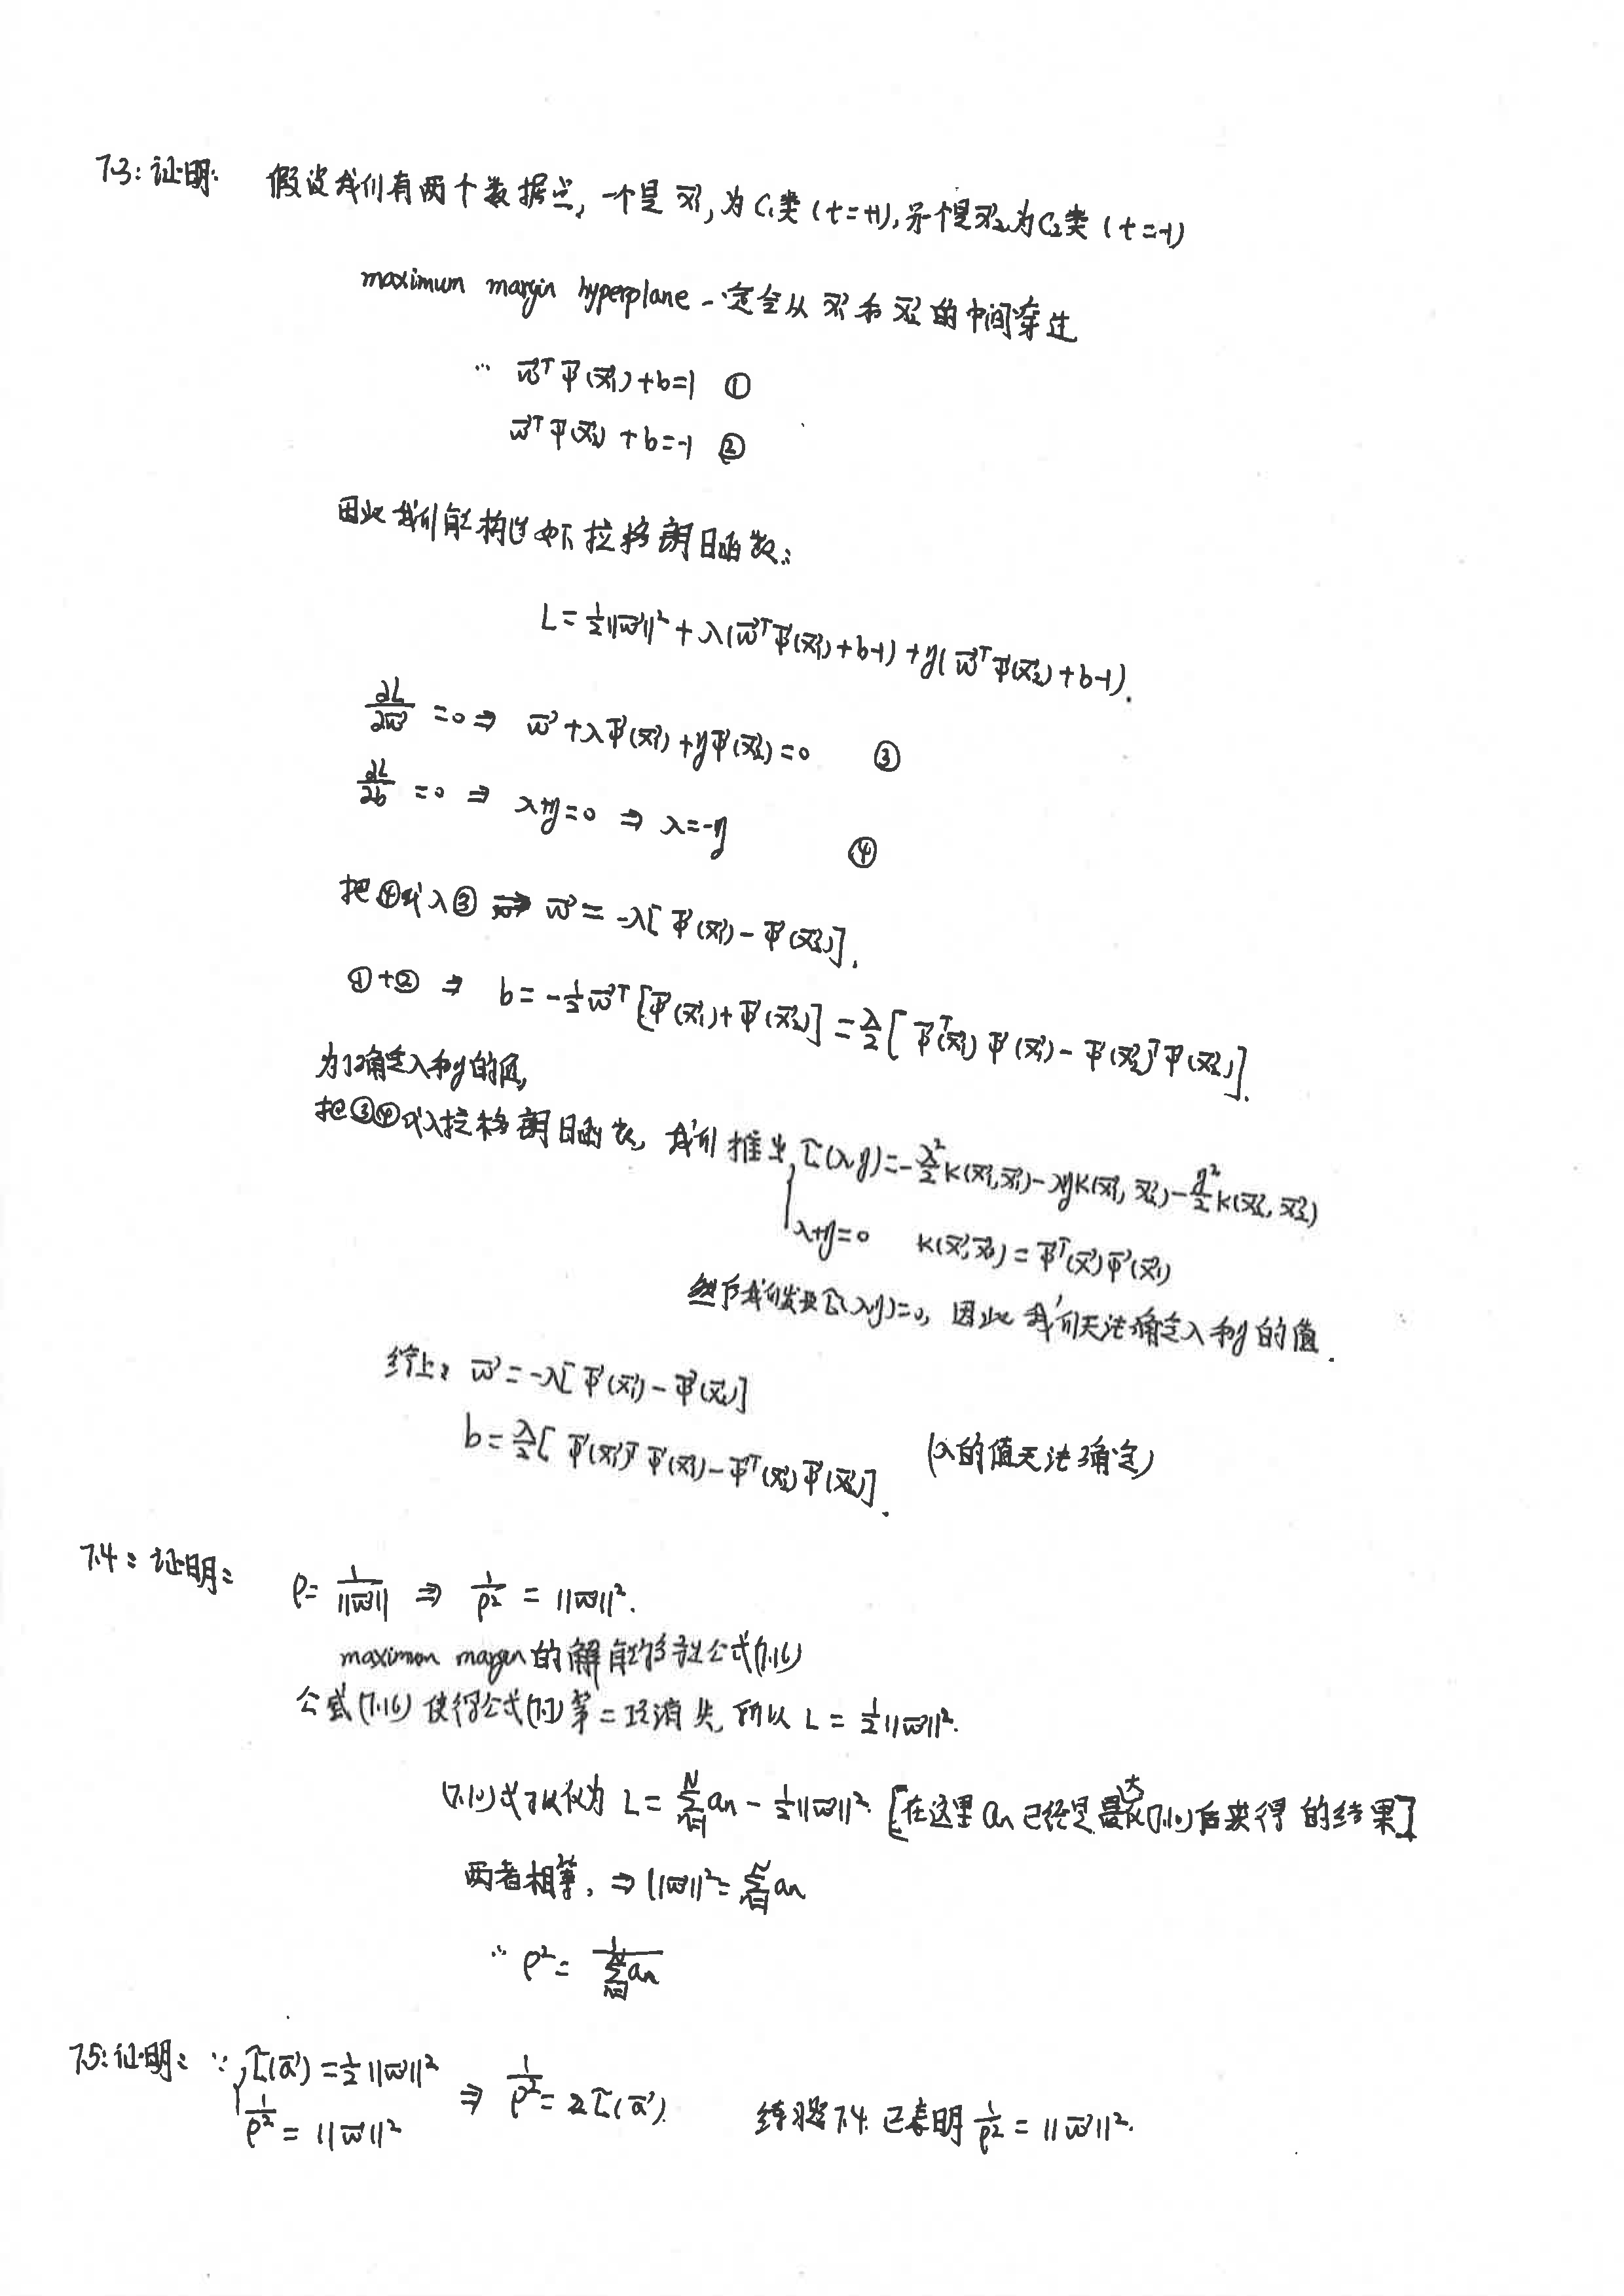 7.3: 证明: 假设我们有两个数据点, 一个是 x⃗₁, 为 C₁类 (t=+1), 另一个是 x⃗₂ 为 C₂类 (t=-1)
maximum margin hyperplane 一定会从 x⃗₁ 和 x⃗₂ 的中间穿过
∴ w⃗ᵀΦ(x⃗₁)+b=1 ①
w⃗ᵀΦ(x⃗₂)+b=-1 ②
因此我们能构造如下拉格朗日函数:
L=½||w⃗||²+λ(w⃗ᵀΦ(x⃗₁)+b-1)+η(w⃗ᵀΦ(x⃗₂)+b-1).
∂L/∂w⃗ =0 ⇒ w⃗+λΦ(x⃗₁)+ηΦ(x⃗₂)=0 ③
∂L/∂b =0 ⇒ λ+η=0 ⇒ λ=-η ④
把④代入③ ⇒ w⃗=-λ[Φ(x⃗₁)-Φ(x⃗₂)].
①+② ⇒ b=-½w⃗ᵀ[Φ(x⃗₁)+Φ(x⃗₂)]=λ/2[Φᵀ(x⃗₁)Φ(x⃗₁)-Φ(x⃗₂)ᵀΦ(x⃗₂)].
为了确定λ和η的值,
把③④代入拉格朗日函数, 我们推出, L̃(λ,η)=-λ²/2 K(x⃗₁,x⃗₁)-ληK(x⃗₁,x⃗₂)-η²/2 K(x⃗₂,x⃗₂)
λ+η=0 K(x⃗,x⃗₁)=Φᵀ(x⃗)Φ(x⃗₁)
然后我们发现L̃(λ,η)=0, 因此我们无法确定λ和η的值.
综上: w⃗=-λ[Φ(x⃗₁)-Φ(x⃗₂)]
b=λ/2[Φ(x⃗₁)ᵀΦ(x⃗₁)-Φᵀ(x⃗₂)Φ(x⃗₂)]. (λ的值无法确定)
7.4: 证明: ρ=1/||w⃗|| ⇒ 1/ρ²=||w⃗||².
maximum margin 的解 公式(7.16)
公式(7.16) 使得公式(7.7)第二项消失, 所以 L=½||w⃗||².
(7.10)式可以化为 L=∑ₙ₌₁ᴺ aₙ-½||w⃗||². [在这里 aₙ 已经是最大化(7.10)后获得的结果]
两者相等, ⇒ ||w⃗||²=∑ₙ₌₁ᴺ aₙ
∴ ρ²=1/∑ₙ₌₁ᴺ aₙ
7.5: 证明: ∵ L̃(a⃗)=½||w⃗||² ⇒ 1/ρ²=2L̃(a⃗). 练习题7.4. 已表明 1/ρ²=||w⃗||².
1/ρ²=||w⃗||²